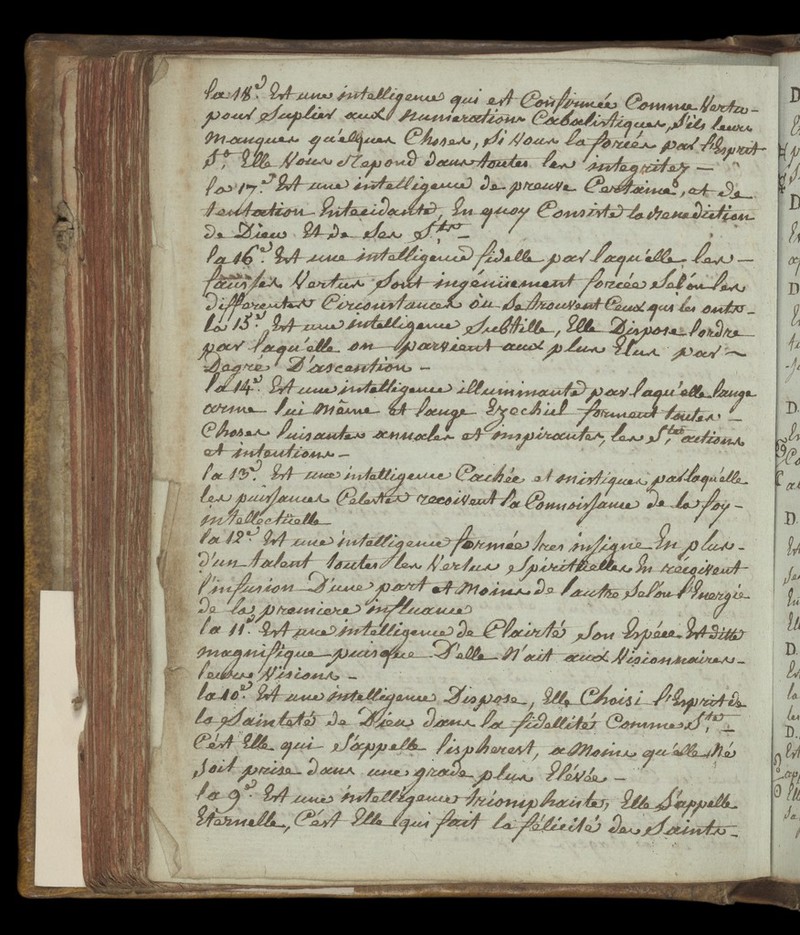 la 18.e Est une intelligence qui est Confirmée Comme Vertu -
pour Suplier aux Numerations Cabalistiques, S'ils leurs
manques quelques Choses, Si Vous la forcées par l'Esprit
St. Elle Vous Repond dans toutes les integritez -
la 17.e Est une intelligence de preuve Certaine, et de
tentation Entecidante, En quoy Consiste la Benediction
de Dieu Et de Ses Sts -
la 16.e Est une intelligence fidelle par laqu'elle les -
fausses Vertus Sont ingénüement forcée Selon les
differentes Circonstances ou Se trouvent Ceux qui les onts -
la 15.e Est une intelligence Subtille, Elle Dispose l'ordre
par laqu'elle on parvient aux plus Elus par
Degré D'ascention -
la 14.e Est une intelligence illuminante par laqu'elle l'ange
arme lui même et l'ange Ezechiel forment toutes -
Choses luisantes annales et inspirantes, les Stes actions
et intentions -
la 13.e Est une intelligence Cachée et mistiques par laqu'elle
les puissances Celestes recoivent la Connoissance de la foy -
intellectüelle
la 12.e Est une intelligence formée tres insigne En plus -
d'un talent toutes les Vertus Spirituelles En reçoivent
l'infusion D'une part et Moins de l'autre Selon l'Energie
de la premiere influance
la 11.e Est une intelligence de Clairté Son Espéce Est ditte
magnifique puisque D'elle N'ait aux Visionnaires -
leurs Visions -
la 10.e Est une intelligence Dispose, Elle Choisi l'Esprit de
la Sainteté de Dieu dans la fidellité Comme Ste -
C'ést Elle qui S'appelle l'ispherest, a Moins qu'elle Né
Soit prise dans une grade plus Elévée -
la 9.e Est une intelligence triomphante, Elle S'appelle
Eternelle, C'ést Elle qui fait la félicité des Saints -